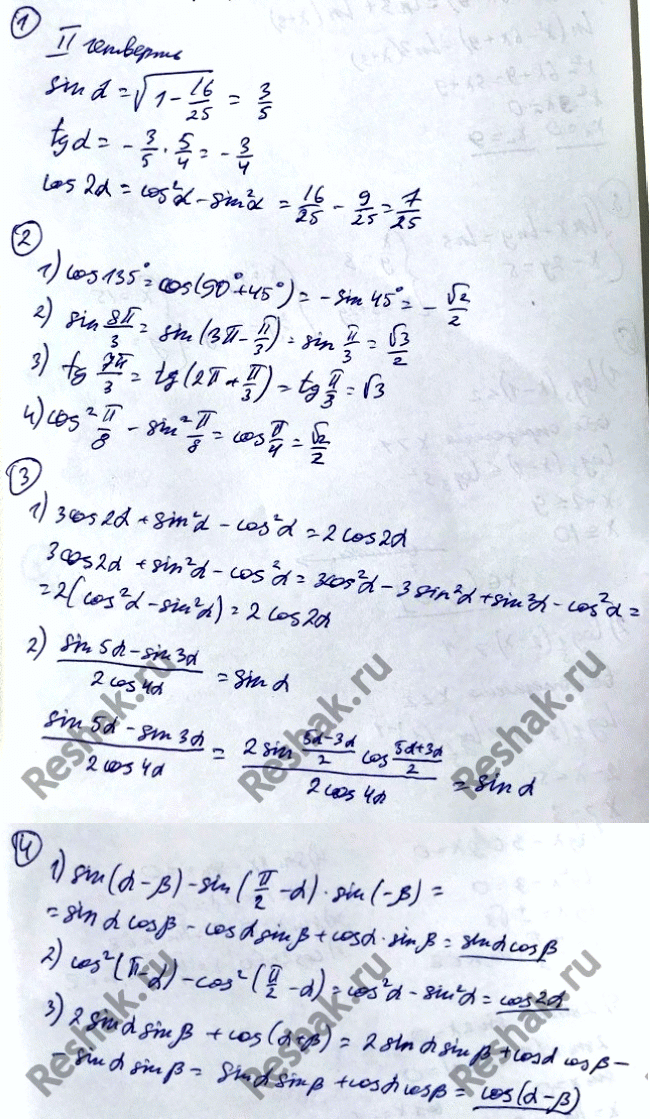 1
II четверть
sin α = √(1 - 16/25) = 3/5
tg α = - 3/5 · 5/4 = - 3/4
cos 2α = cos²α - sin²α = 16/25 - 9/25 = 7/25
2
1) cos 135° = cos(90° + 45°) = - sin 45° = - √2/2
2) sin 8π/3 = sin(3π - π/3) = sin π/3 = √3/2
3) tg 7π/3 = tg(2π + π/3) = tg π/3 = √3
4) cos² π/8 - sin² π/8 = cos π/4 = √2/2
3
1) 3cos2α + sin²α - cos²α = 2cos2α
3cos2α + sin²α - cos²α = 3cos²α - 3sin²α + sin²α - cos²α =
= 2(cos²α - sin²α) = 2cos2α
2) (sin 5α - sin 3α)/(2cos 4α) = sin α
(sin 5α - sin 3α)/(2cos 4α) = (2 sin (5α-3α)/2 cos (5α+3α)/2)/(2cos 4α) = sin α
Reshak.ru Reshak.ru Reshak.ru
4
1) sin(α - β) - sin(π/2 - α) · sin(-β) =
= sin α cos β - cos α sin β + cos α · sin β = sin α cos β
2) cos²(π - α) - cos²(π/2 - α) = cos²α - sin²α = cos2α
3) 2 sin α sin β + cos(α + β) = 2 sin α sin β + cos α cos β -
- sin α sin β = sin α sin β + cos α cos β = cos(α - β)
Reshak.ru Reshak.ru Reshak.ru